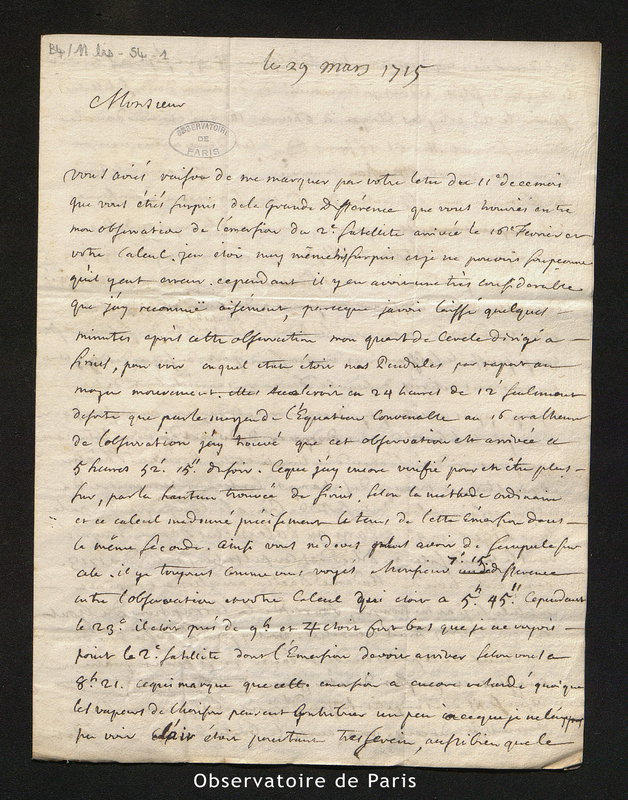 B4/11 bis - 54 - 1
le 29 mars 1715
Monsieur
OBSERVATOIRE
DE
PARIS
vous aviés raison de me marquer par votre letre du 11e de ce mois
que vous étiés surpris de la Grande Différence que vous trouviés entre
mon observation de l'émersion du 2e Satellite arrivée le 16e Fevrier et
votre Calcul. j'en étois moy même surpris et je ne pouvois soupconner
qu'il y eut erreur. cependant il y en avoit une très considerable
que j'ay reconnuë aisément, parceque j'avois laissé quelques
minutes après cette observation mon quart de Cercle dirigé a
Sirius, pour voir en quel état étoit mes Pendules par raport au
moyen mouvement. elles acceleroit en 24 heures de 12" seulement
desorte que par le moyen de l'Équation convenable au 16 et a l'heure
de l'observation j'ay trouvé que cet observation est arrivée a
5 heures 52'. 15". du soir. Ceque j'ay encore verifié pour en être plus
sur, par la hauteur trouvée de Sirius, selon la méthode ordinaire
et ce calcul me donne précisement le tems de cette Émersion dans
la même seconde. Ainsi vous ne devés point avoir de scrupule sur
cela. il y a toujours comme vous voyés Monsieur 7'. 15" de difference
entre l'observation et votre Calcul qui étoit a 5h 45'. Cependant
le 23e il étoit près de 9h et ♃ étoit fort bas que je ne voyois
point le 2e satellite dont l'Émersion devoit arriver selon vous a
8h 21. cequi marque que cette émersion a encore retardé quoique
les vapeurs de l'horison peuvent contribuer un peu a ceque je ne l'ay
pu voir l'air étoit pourtant tres serein, aussi bien que le
Observatoire de Paris